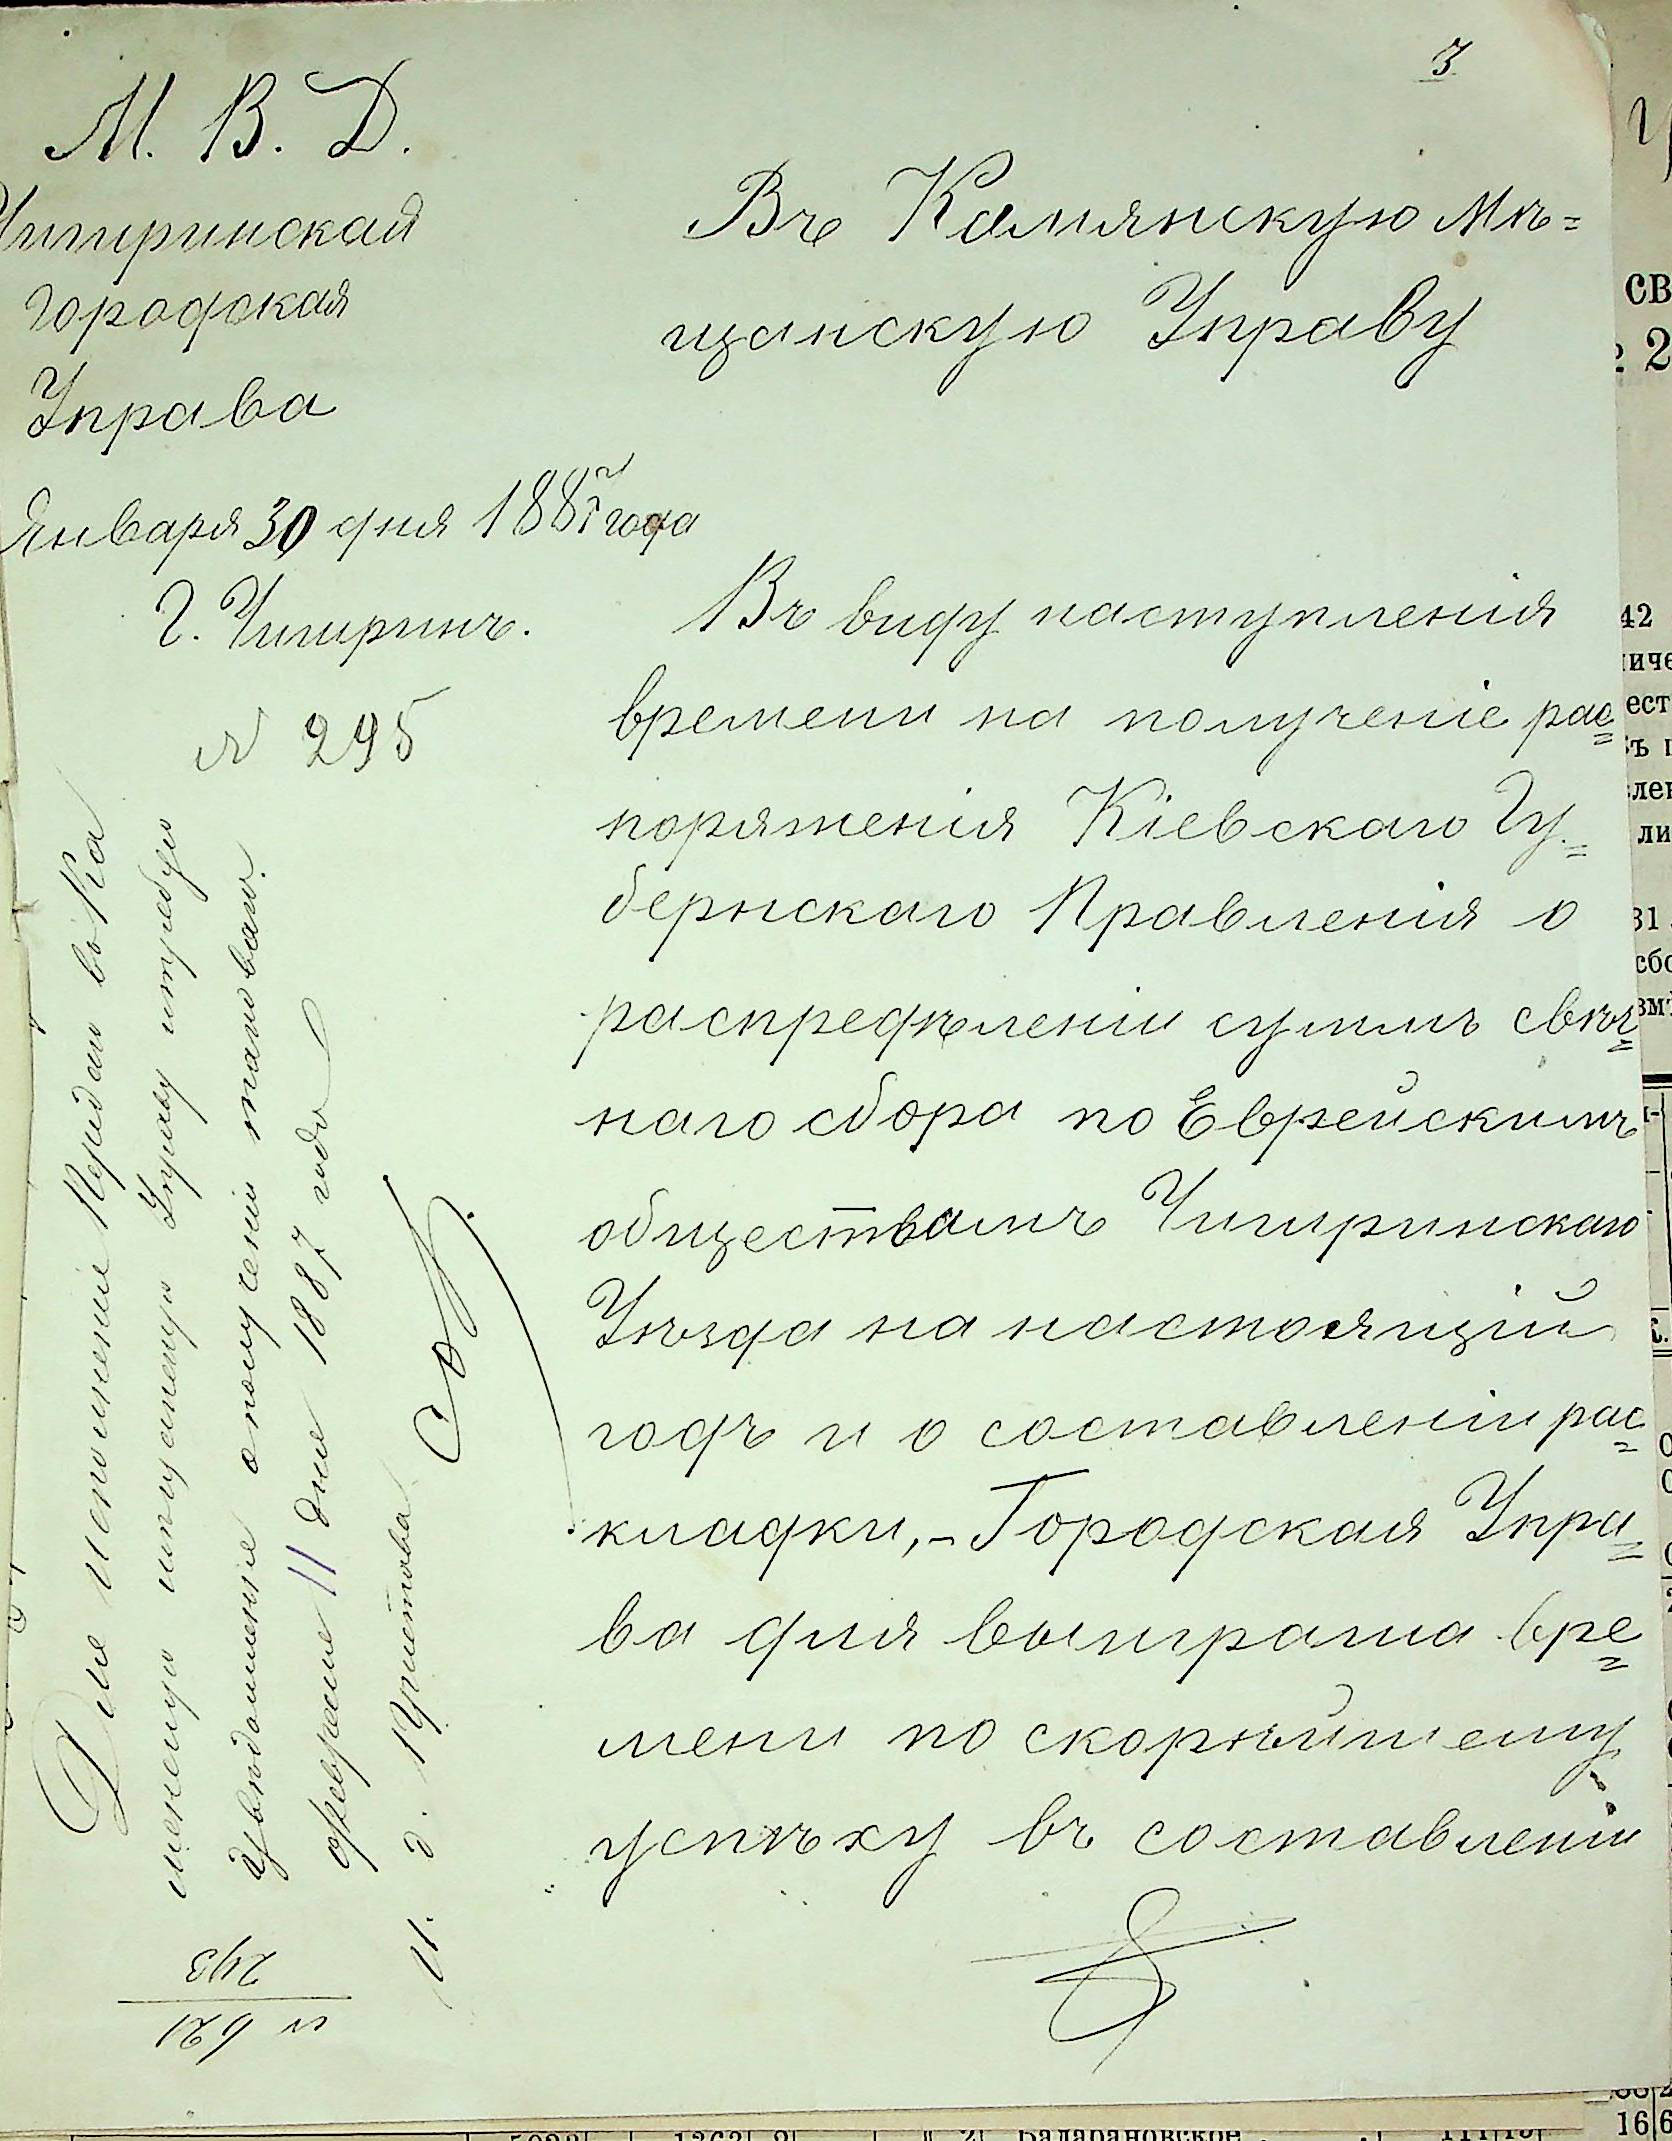 3
М. В. Д.
Чигиринская
городская
Управа
Января 30 дня 1887 года
г. Чигиринъ.
№ 295
Въ Камянскую мѣ=
щанскую Управу
Въ виду наступленія
времени на полученіе рас=
поряженія Кіевскаго Гу=
бернскаго Правленія о
распредѣленіи суммъ свѣч=
наго сбора по Еврейскимъ
обществамъ Чигиринскаго
Уѣзда на настоящій
годъ и о составленіи рас=
кладки,- Городская Упра=
ва для выиграша вре=
мени по скорѣйшему
успѣху въ составленіи
Для исполненія Передать въ Ка
мянскую мѣщанскую Управу и требую
увѣдомленіе о полученіи таковаго.
февраля 11 дня 1887 года
И. д. Пристава
№ 621
243
СВ
2
42
31
16 6
Баларановское